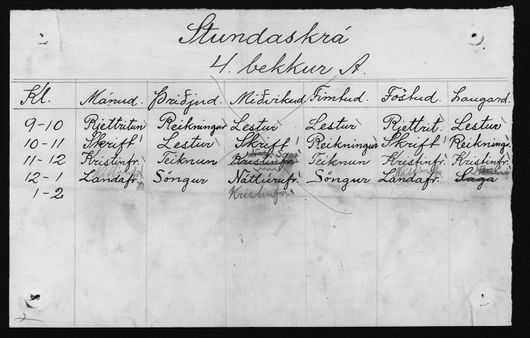 Stundaskrá
4. bekkur A.
Kl. Mánud. Þriðjud. Miðvikud. Fimtud. Föstud. Laugard.
9-10 Rjettritun Reikningur Lestur Lestur Rjettrit. Lestur
10-11 Skrift Lestur Skrift Reikningur Skrift Reikningur
11-12 Kristinfr. Teiknun Kristinfr. Teiknun Kristinfr. Kristinfr.
12-1 Landafr. Söngur Náttúrufr. Söngur Landafr. Saga
1-2 Kristinfr.